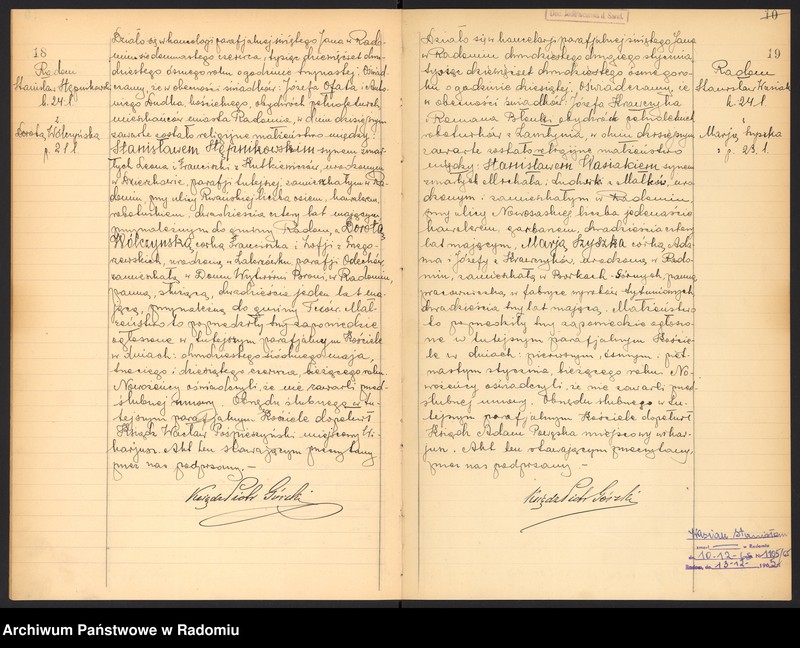 18
Radom
Stanisław Stępnikowski
k. 24 l.
i
Dorota Wólczyńska
p. 21 l.
Działo się w kancelarji parafjalnej świętego Jana w Rado-
miu siedemnastego czerwca, tysiąc dziewięćset dwu-
dziestego ósmego roku o godzinie trzynastej. Oświad-
czamy, że w obecności świadków: Józefa Ofata i Anto-
niego Dudka kościelnego, obydwóch pełnoletnich
mieszkańców miasta Radomia, w dniu dzisiejszym
zawarte zostało religijne małżeństwo między:
Stanisławem Stępnikowskim synem zmar-
łych Leona i Franciszki z Rutkiewiczów, urodzonym
w parafji tutejszej, zamieszkałym w Ra-
domiu, przy ulicy Rwańskiej liczba osiem, kawalerem,
robotnikiem, dwadzieścia cztery lat mającym
przynależnym do gminy Radom, a Dorotą
Wólczyńską, córką Franciszka i Zofji z Grzego-
rzewskich, urodzoną w parafji Odechów,
zamieszkałą w Domu Wytwórni Broni, w Radomiu,
panną, służącą, dwadzieścia jeden lat ma-
jącą, przynależną do gminy Mał-
żeństwo to poprzedziły trzy zapowiedzie
ogłoszone w tutejszym parafjalnym Kościele
w dniach: dwudziestego siódmego maja,
trzeciego i dziesiątego czerwca bieżącego roku.
Nowożeńcy oświadczyli, że nie zawarli przed-
ślubnej umowy. Obrzędu ślubnego w tu-
tejszym parafjalnym Kościele dopełnił
Ksiądz Wacław miejscowy Wi-
karjusz. Akt ten stawającym przeczytany,
przez nas podpisany. –
Ksiądz Piotr Górski
10
19
Radom
Stanisław Wasiak
k. 24 l.
i
Marja Szyszka
p. 23 l.
Działo się w kancelarji parafjalnej świętego Jana
w Radomiu dwudziestego drugiego stycznia,
tysiąc dziewięćset dwudziestego ósmego ro-
ku o godzinie dziesiątej. Oświadczamy, że
w obecności świadków: Józefa Krawczyka
i Romana obydwóch pełnoletnich
robotników z Zamłynia, w dniu dzisiejszym
zawarte zostało religijne małżeństwo
między: Stanisławem Wasiakiem synem
zmarłych Michała i Ludwiki z Małków, uro-
dzonym i zamieszkałym w Radomiu,
przy ulicy liczba jedenaście
kawalerem, garbarzem, dwadzieścia cztery
lat mającym, a Marją Szyszką córką Ada-
ma i Józefy z Krawczyków, urodzoną w Rado-
miu, zamieszkałą w Borkach - panną,
pracownicą w fabryce wyrobów tytuniowych,
dwadzieścia trzy lat mającą. Małżeństwo
to poprzedziły trzy zapowiedzie ogłoszo-
ne w tutejszym parafjalnym Koście-
le w dniach: pierwszym, ósmym i pięt-
nastym stycznia, bieżącego roku. No-
wożeńcy oświadczyli, że nie zawarli przed-
ślubnej umowy. Obrzędu ślubnego w tu-
tejszym parafjalnym Kościele dopełnił
Ksiądz Adam miejscowy wikar-
jusz. Akt ten stawającym przeczytany,
przez nas podpisany –
Ksiądz Piotr Górski
Wasiak Stanisław
zmarł w Radomiu
10-12-65 1105/65
Radom, dn. 13-12- 1965
Archiwum Państwowe w Radomiu